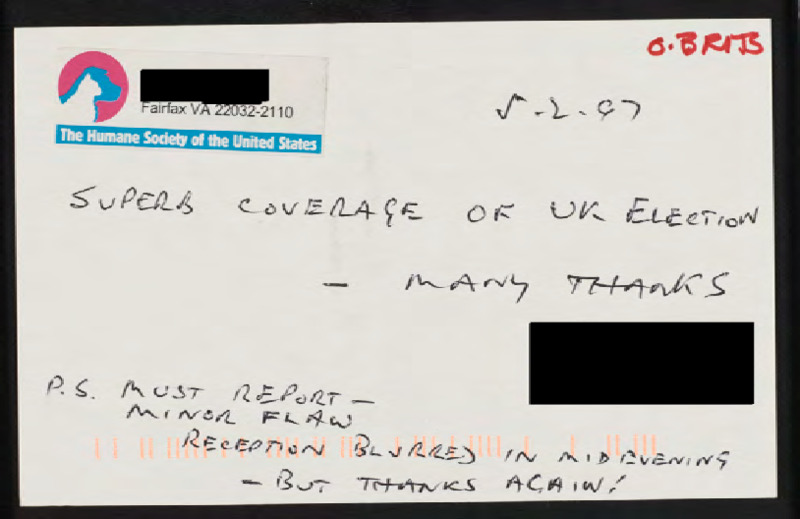 O.BRITS
Fairfax VA 22032-2110
The Humane Society of the United States
5.2.97
SUPERB COVERAGE OF UK ELECTION
— MANY THANKS
P.S. MUST REPORT —
MINOR FLAW
RECEPTION BLURRED IN MIDEVENING
— BUT THANKS AGAIN!